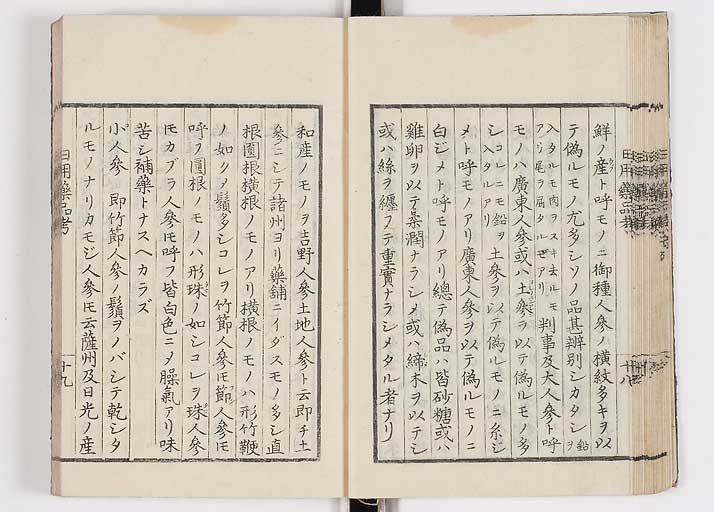 鮮ノ産ト呼モノニ御種人參ノ横紋多キヲ以
テ偽ルモノ尤多シソノ品甚辨別シカタシ鉛ヲ
入タルモ肉ヲスキ去ルモアリ尾ヲ屈タルモアリ判事及大人參ト呼
モノハ廣東人參或ハ土參ヲ以テ偽ルモノ多
シコレニモ鉛ヲ入タルアリ土參ヲ以テ偽ルモノニ糸ジ
メト呼モノアリ廣東人參ヲ以テ偽ルモノニ
白ジメト呼モノアリ總テ偽品ハ皆砂糖或ハ
雞卵ヲ以テ柔潤ナラシメ或ハ締木ヲ以テシ
或ハ絲ヲ纏フテ重實ナラシメタル者ナリ
日用藥品考
十八
和産ノモノヲ吉野人參土地人參ト云即チ土
參ニシテ諸州ヨリ藥舖ニイダスモノ多シ直
根圓根横根ノモノアリ横根ノモノハ形竹鞭
ノ如クメ鬚多シコレヲ竹節人參トモ節人參トモ
呼フ圓根ノモノハ形珠ノ如シコレヲ珠人參
トモカブラ人參トモ呼フ皆白色ニメ臊氣アリ味
苦シ補藥トナスヘカラズ
小人參 即竹節人參ノ鬚ヲノバシテ乾シタ
ルモノナリカモジ人參トモ云薩州及日光ノ産
日用藥品考
十九